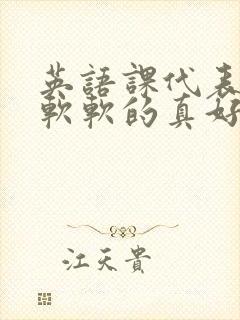 英語課代表
軟軟的真好
江天貴